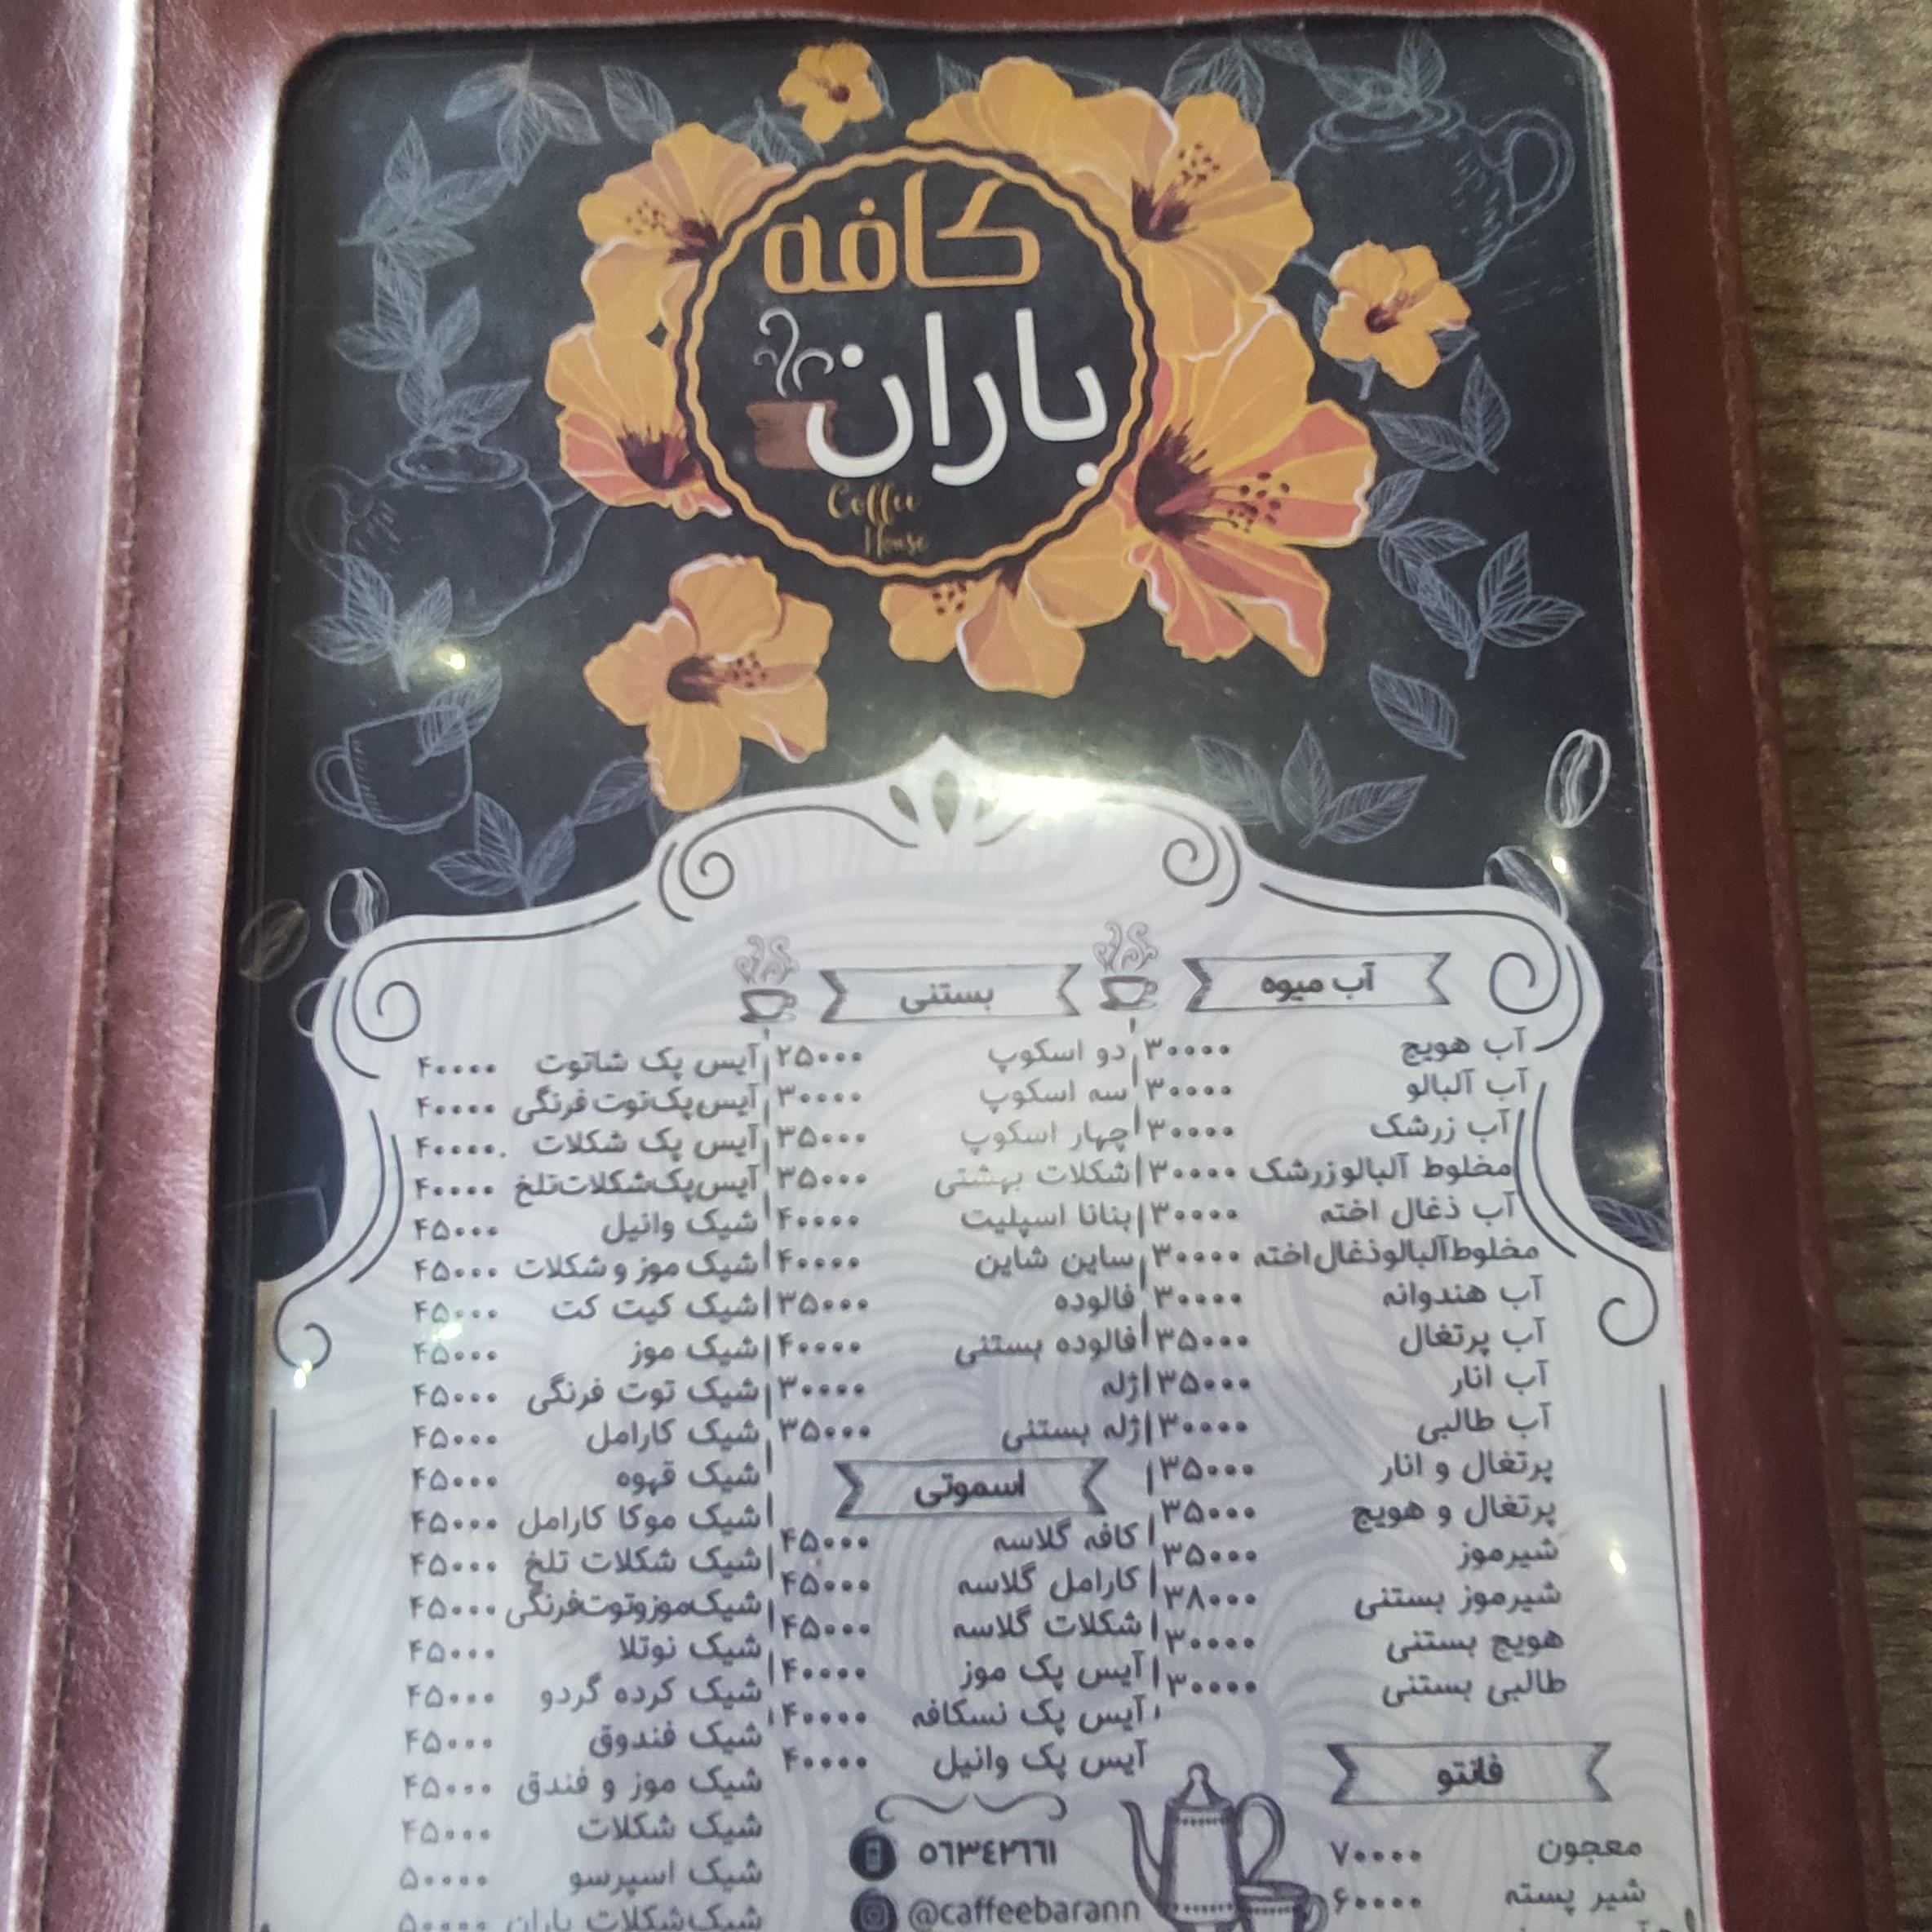 کافه
باران
Coffee
House
آب میوه
آب هویج ۳۰۰۰۰
آب آلبالو ۳۰۰۰۰
آب زرشک ۳۰۰۰۰
مخلوط آلبالو زرشک ۳۰۰۰۰
آب ذغال اخته ۳۰۰۰۰
مخلوط آلبالو ذغال اخته ۳۰۰۰۰
آب هندوانه ۳۰۰۰۰
آب پرتغال ۳۵۰۰۰
آب انار ۳۵۰۰۰
آب طالبی ۳۰۰۰۰
پرتغال و انار ۳۵۰۰۰
پرتغال و هویج ۳۵۰۰۰
شیرموز ۳۵۰۰۰
شیرموز بستنی ۳۸۰۰۰
هویج بستنی ۳۰۰۰۰
طالبی بستنی ۳۰۰۰۰
فانتو
معجون ۷۰۰۰۰
شیر پسته ۶۰۰۰۰
بستنی
دو اسکوپ ۲۵۰۰۰
سه اسکوپ ۳۰۰۰۰
چهار اسکوپ ۳۵۰۰۰
شکلات بهشتی ۳۵۰۰۰
بنانا اسپلیت ۴۰۰۰۰
ساین شاین ۴۰۰۰۰
فالوده ۳۵۰۰۰
فالوده بستنی ۴۰۰۰۰
ژله ۳۰۰۰۰
ژله بستنی ۳۵۰۰۰
اسموتی
کافه گلاسه ۴۵۰۰۰
کارامل گلاسه ۴۵۰۰۰
شکلات گلاسه ۴۵۰۰۰
آیس پک موز ۴۰۰۰۰
آیس پک نسکافه ۴۰۰۰۰
آیس پک وانیل ۴۰۰۰۰
۰۵۶۳۴۲۶۶۱
@caffeebarann
آیس پک شاتوت ۴۰۰۰۰
آیس پک توت فرنگی ۴۰۰۰۰
آیس پک شکلات ۴۰۰۰۰
آیس پک شکلات تلخ ۴۰۰۰۰
شیک وانیل ۴۵۰۰۰
شیک موز و شکلات ۴۵۰۰۰
شیک کیت کت ۴۵۰۰۰
شیک موز ۴۵۰۰۰
شیک توت فرنگی ۴۵۰۰۰
شیک کارامل ۴۵۰۰۰
شیک قهوه ۴۵۰۰۰
شیک موکا کارامل ۴۵۰۰۰
شیک شکلات تلخ ۴۵۰۰۰
شیک موز و توت فرنگی ۴۵۰۰۰
شیک نوتلا ۴۵۰۰۰
شیک کرده گردو ۴۵۰۰۰
شیک فندوق ۴۵۰۰۰
شیک موز و فندق ۴۵۰۰۰
شیک شکلات ۴۵۰۰۰
شیک اسپرسو ۵۰۰۰۰
شیک شکلات باران ۵۰۰۰۰